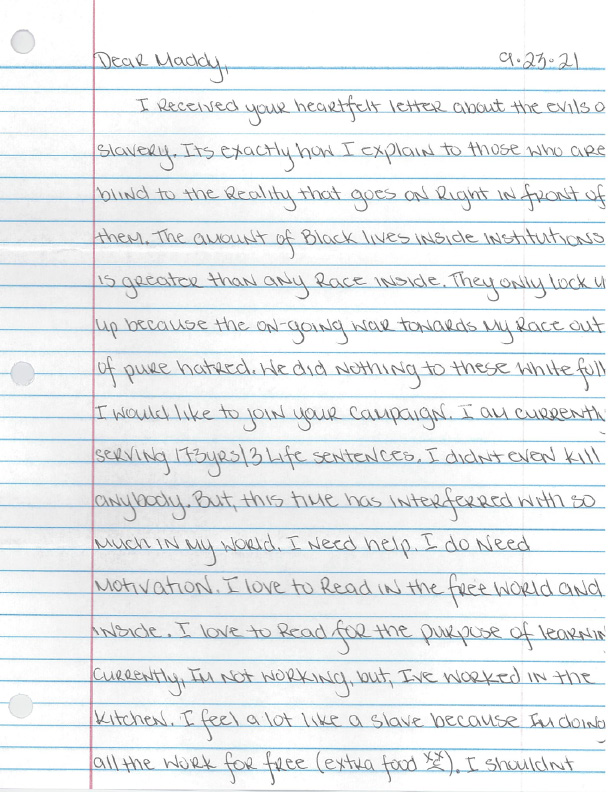 Dear Maddy, 9.23.21
I Received your heartfelt letter about the evils o
slavery. Its exactly how I explain to those who are
blind to the Reality that goes on Right in front of
them. The amount of Black lives inside institutions
is greater than any Race inside. They only lock u
up because the on-going war towards my Race out
of pure hatred. We did nothing to these white full
I would like to join your campaign. I am currently
serving 173yrs/3 Life sentences. I didnt even kill
anybody. But, this time has interferred with so
much in my world. I need help. I do need
motivation. I love to Read in the free world and
inside. I love to Read for the purpose of learnin
Currently, Im not working, but, Ive worked in the
kitchen. I feel a lot like a slave because Im doing
all the work for free (extra food). I shouldnt